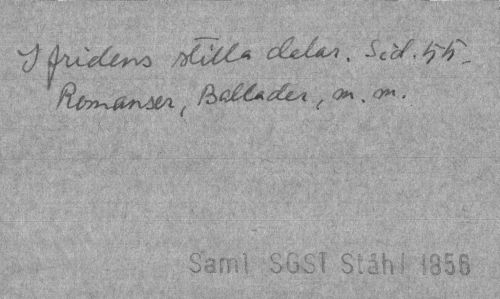 I fridens stilla dalar. Sid. 55-
Romanser, Ballader, m. m.
Saml SGST Ståhl 1856